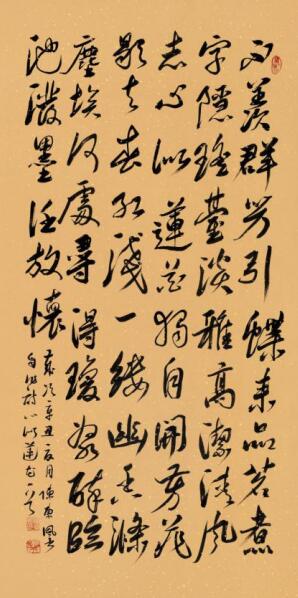 不羡群芳引蝶來品茗煮
字隱瑤臺淡雅高潔清風
志心似蓮花獨自開芳菲
歇去春紅淺一縷幽香滌
塵埃何處尋得瓊漿醉臨
池潑墨任放懷
歲次辛丑夏月陳風書
自作詩心似蓮花一首